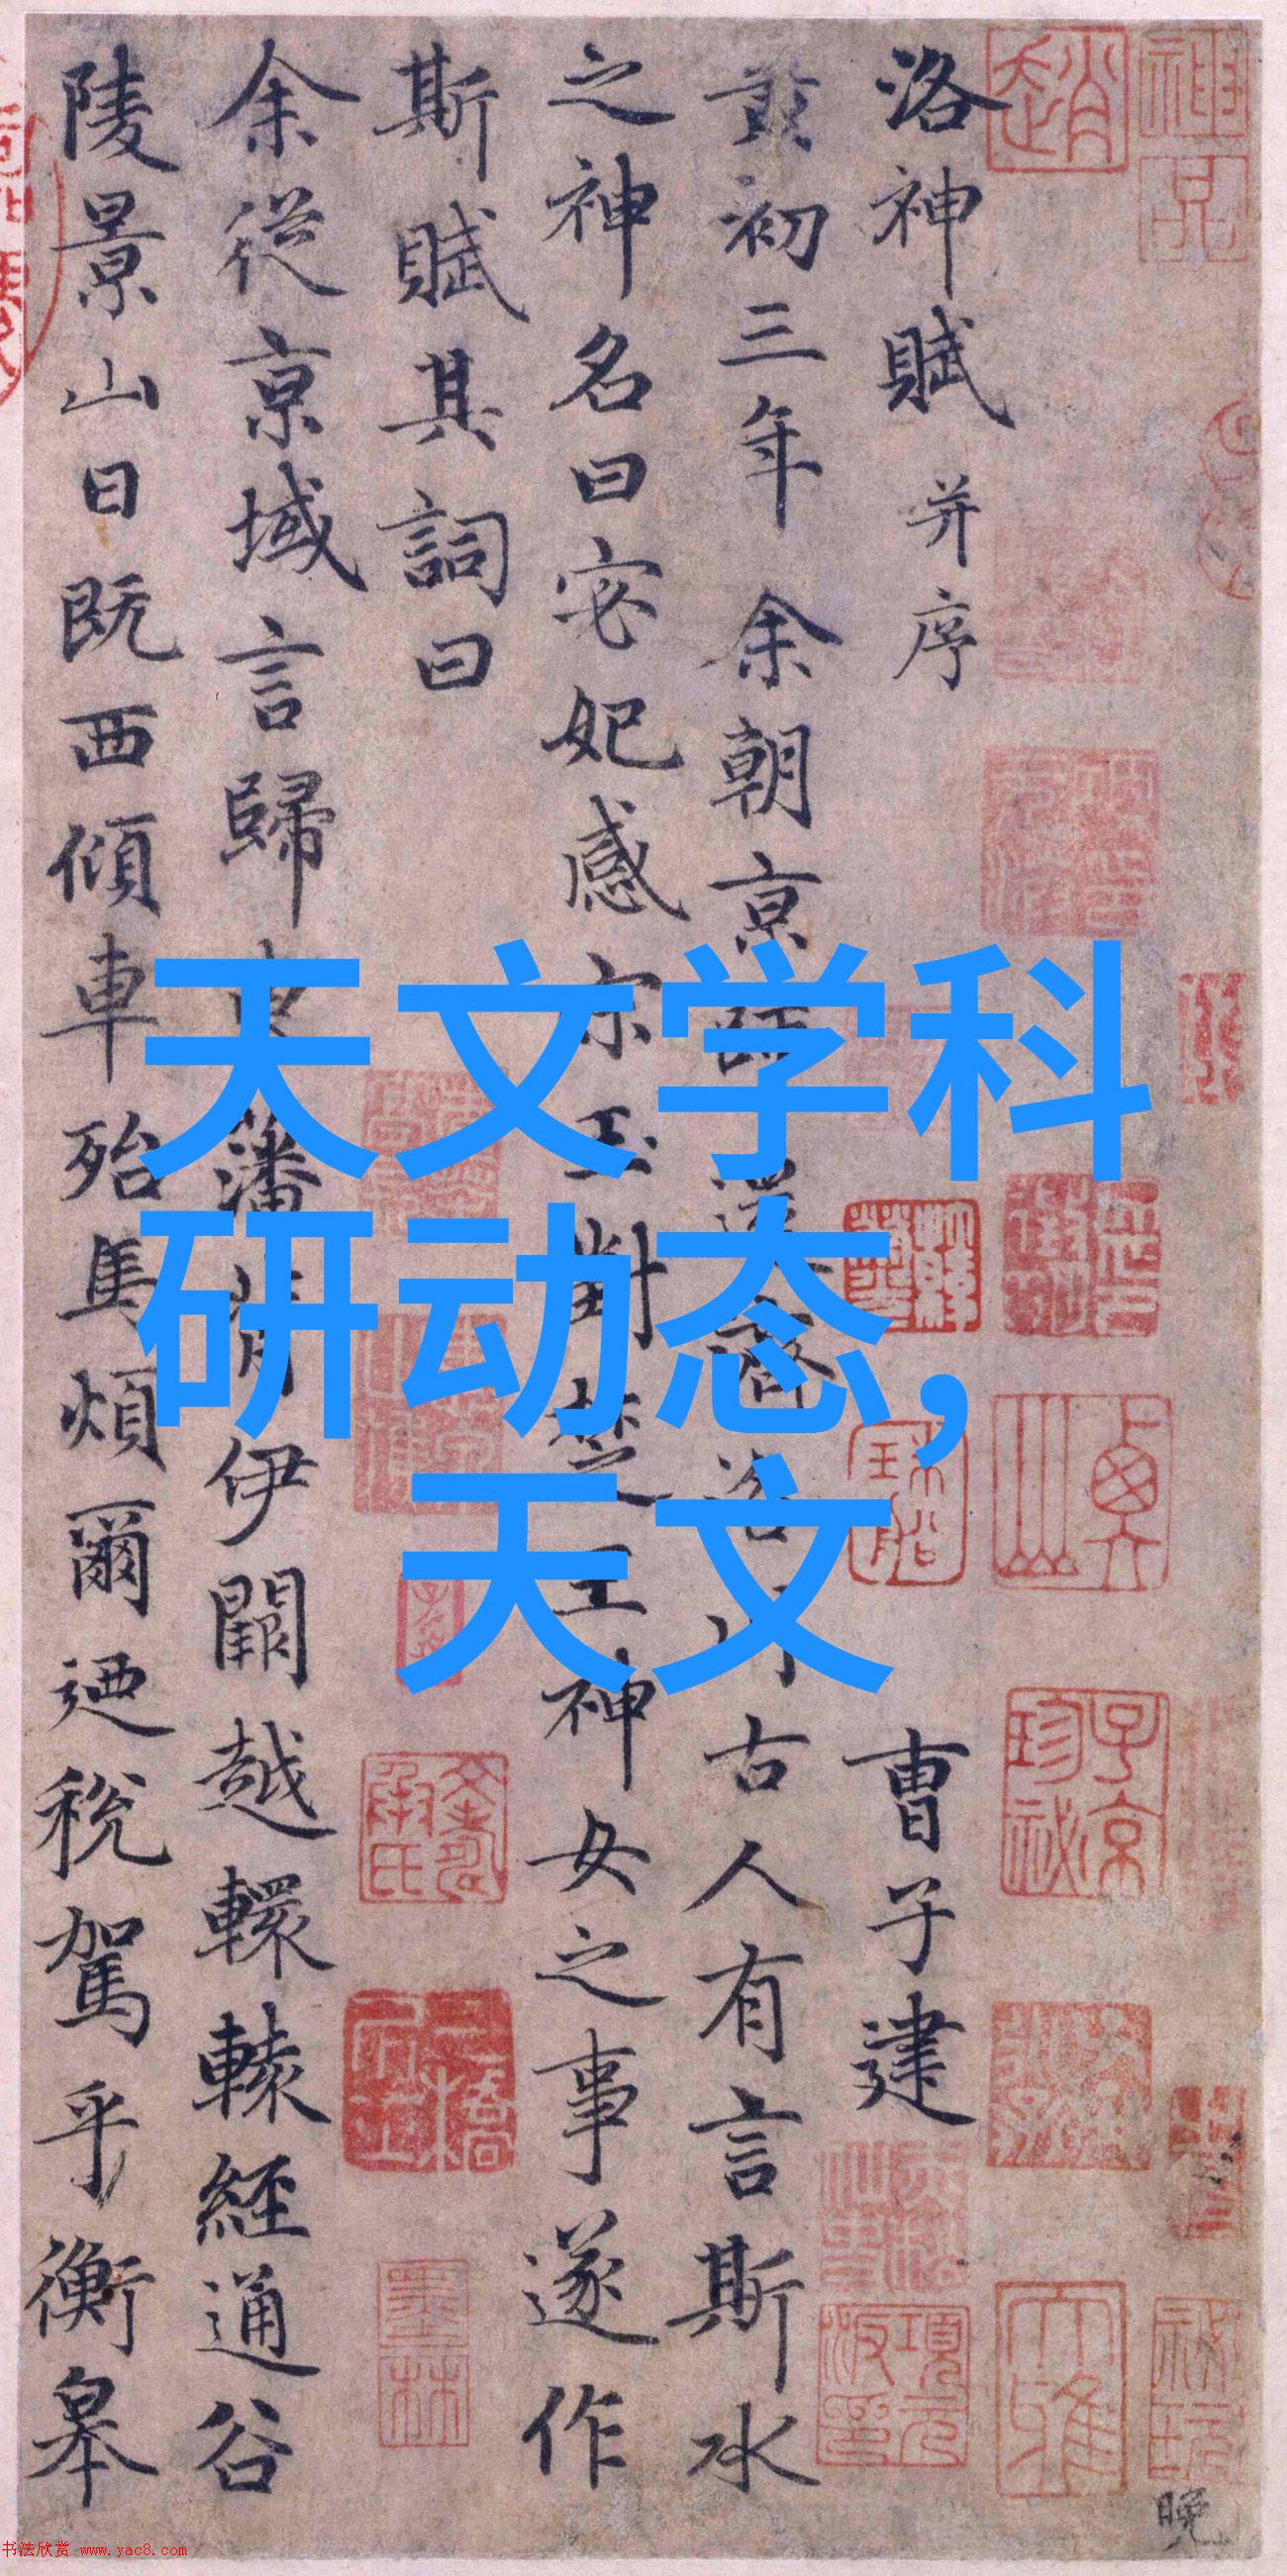 天文学科
研动态,
天文
洛神賦 并序 曹子建
黃初三年余朝京師還濟洛川古人有言斯水
之神名曰宓妃感宋玉對楚王神女之事遂作
斯賦其詞曰
余從京域言歸東藩背伊闕越轘轅經通谷
陵景山日既西傾車殆馬煩爾迺稅駕乎衡皋
趙
神品
墨林
晚
书法欣赏 www.yac8.com